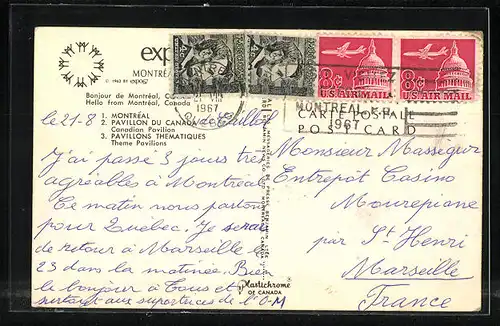 expo
MONTRÉAL
© 1963 BY expo67
Bonjour de Montréal, Canada
Hello from Montréal, Canada
1. MONTRÉAL
2. PAVILLON DU CANADA
Canadian Pavilion
3. PAVILLONS THÉMATIQUES
Theme Pavilions
1967
8¢
U.S. AIR MAIL
8¢
U.S. AIR MAIL
MONTREAL, P.Q.
1967
CARTE POSTALE
POST CARD
le 21-8
J'ai passé 3 jours très
agréables à Montréal
Ce matin nous partons
pour Québec. Je serai
de retour à Marseille le
23 dans la matinée. Bien
le bonjour à tous et
surtout aux supporters de l'O-M
Plastichrome®
OF CANADA
Monsieur Massegur
Entrepôt Casino
Mourepiane
par St Henri
Marseille
France